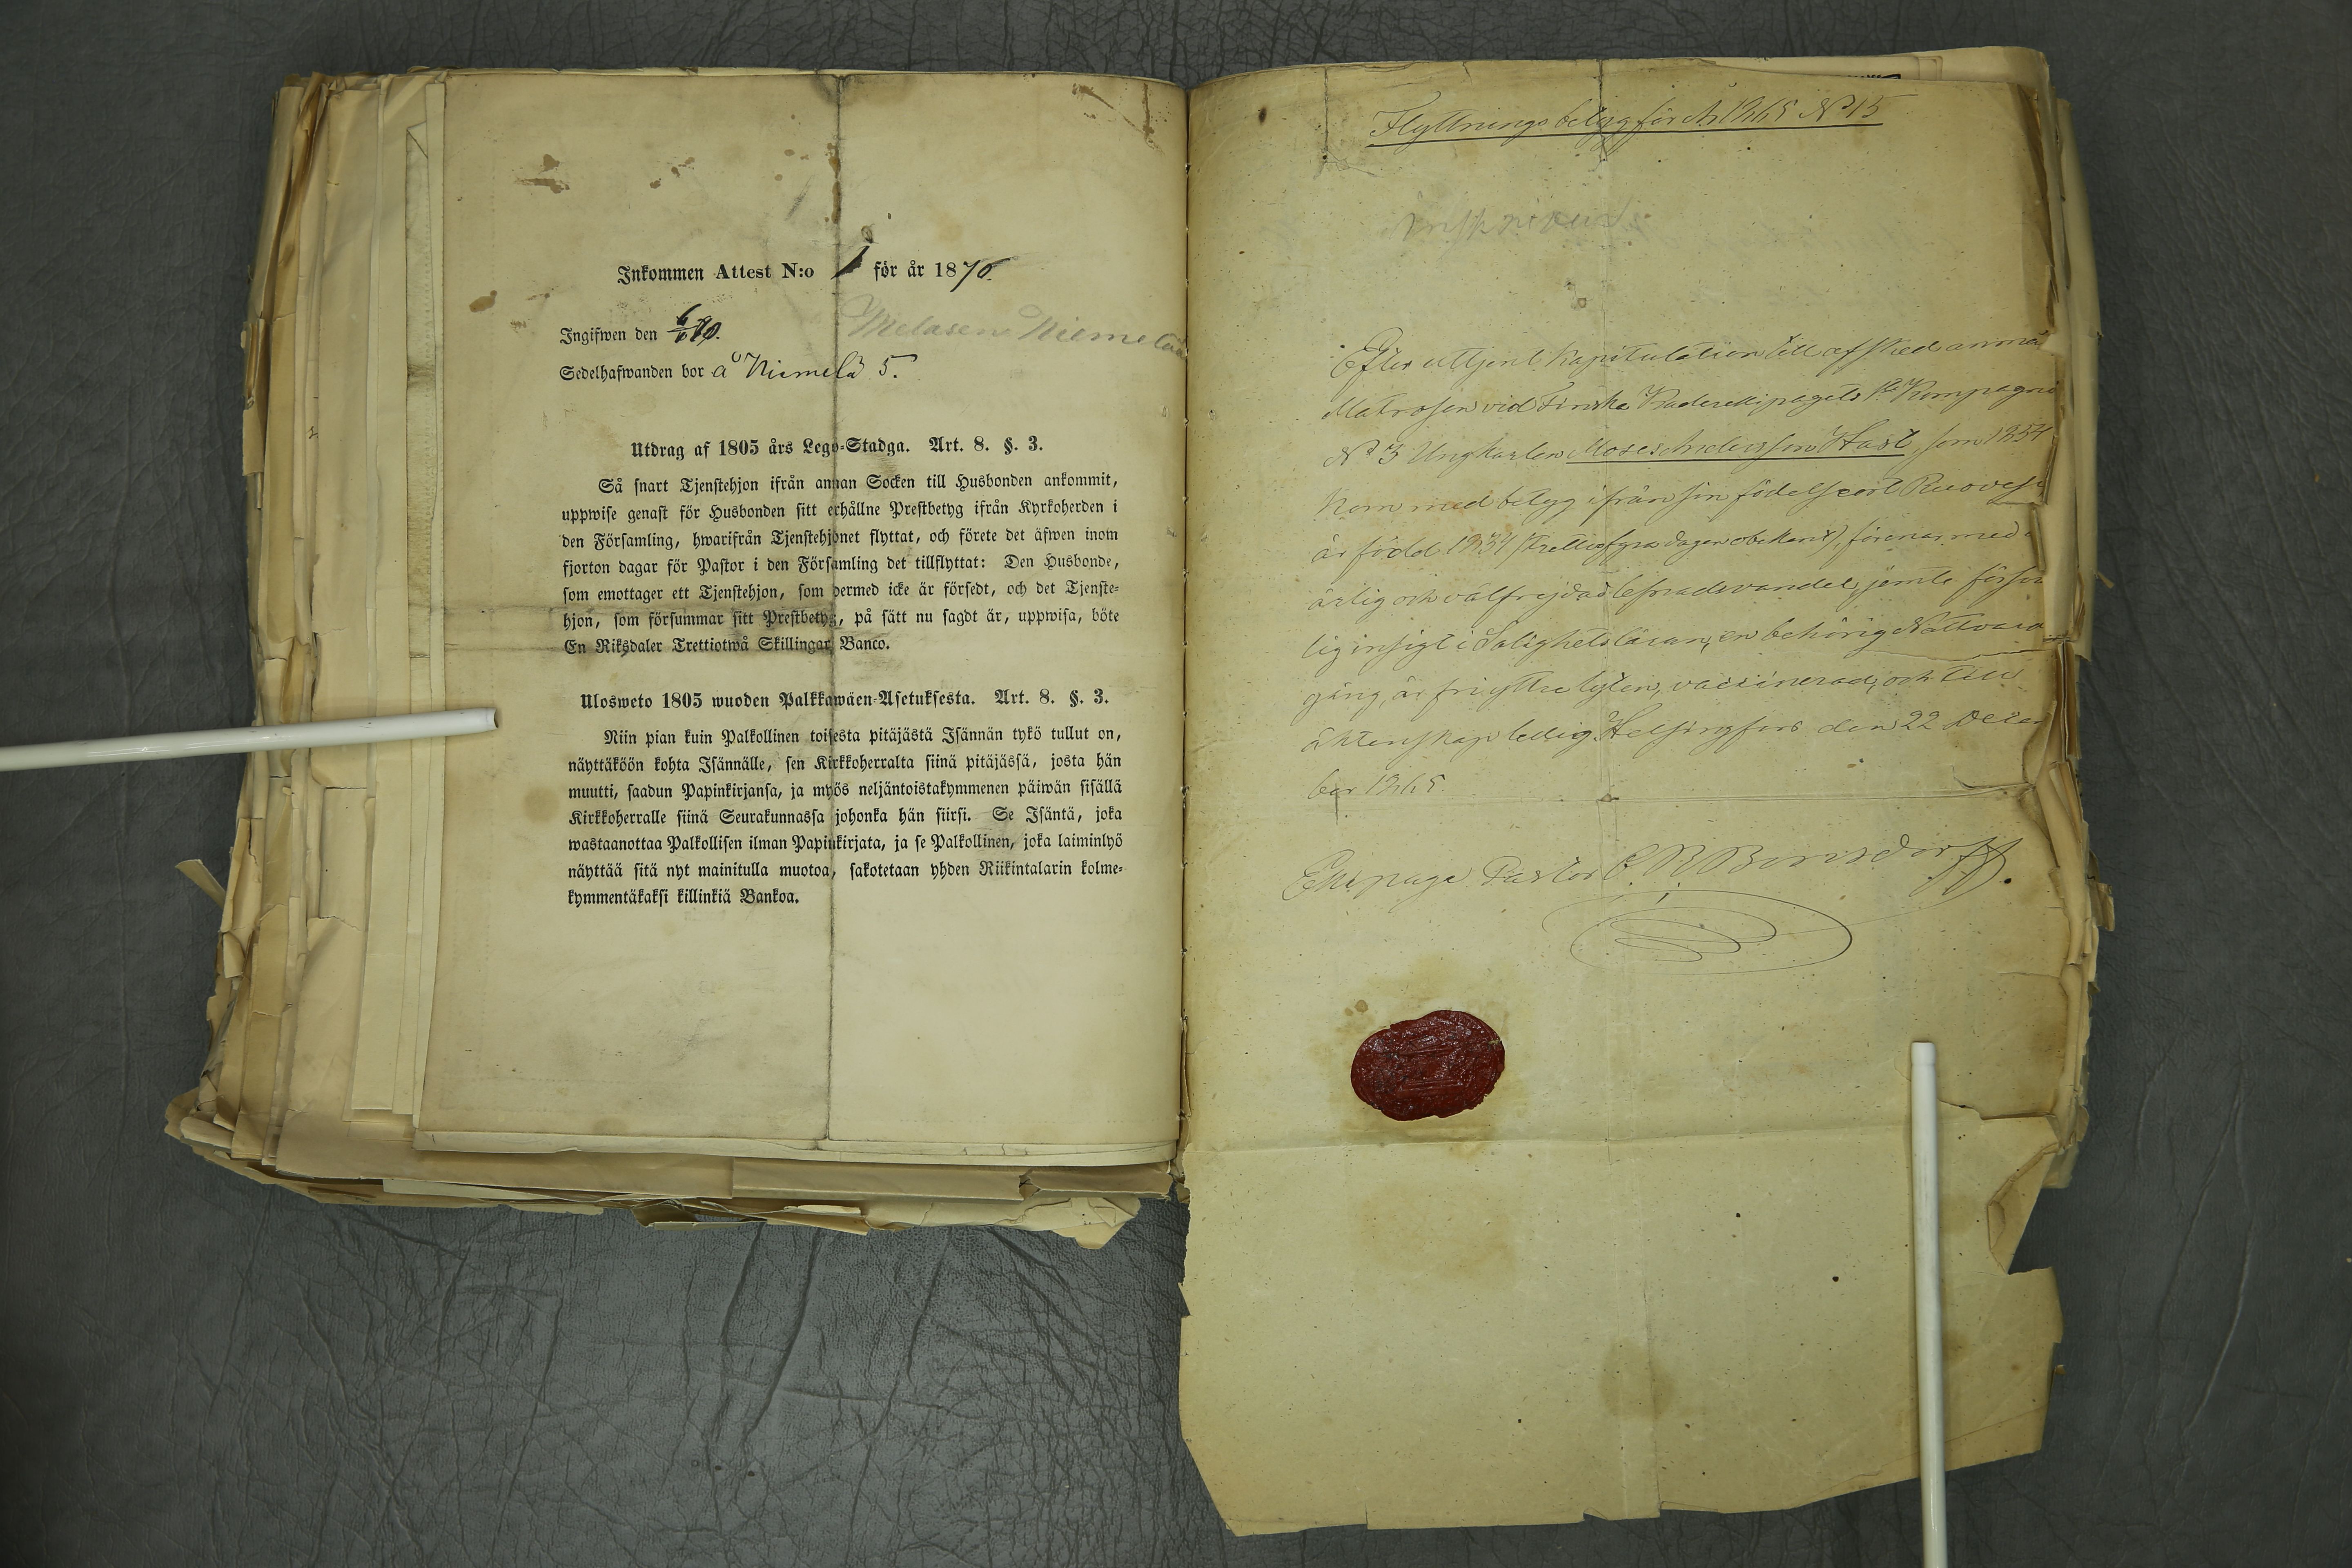 Inkommen Attest N:o 1 för år 1870.
Ingifwen den
Melasen Niemelä
Sedelhafwanden bor å Niemelä 5.
Utdrag af 1805 års Lego-Stadga. Art. 8. §. 3.
Så snart Tjenstehjon ifrån annan Socken till Husbonden ankommit,
uppwise genast för Husbonden sitt erhållne Prestbetyg ifrån Kyrkoherden i
den Församling, hwarifrån Tjenstehjonet flyttat, och förete det äfwen inom
fjorton dagar för Pastor i den Församling det tillflyttat: Den Husbonde,
som emottager ett Tjenstehjon, som dermed icke är försedt, och det Tjenste-
hjon, som försummar sitt Prestbetyg, på sätt nu sagdt är, uppwisa, böte
En Riksdaler Trettiotwå Skillingar Banco.
Ulosweto 1805 wuoden Palkkawäen-Asetuksesta. Art. 8. §. 3.
Niin pian kuin Palkollinen toisesta pitäjästä Isännän tykö tullut on,
näyttäköön kohta Isännälle, sen Kirkkoherralta siinä pitäjässä, josta hän
muutti, saadun Papinkirjansa, ja myös neljäntoistakymmenen päiwän sisällä
Kirkkoherralle siinä Seurakunnassa johonka hän siirsi. Se Isäntä, joka
wastaanottaa Palkollisen ilman Papinkirjata, ja se Palkollinen, joka laiminlyö
näyttää sitä nyt mainitulla muotoa, sakotetaan yhden Riikintalarin kolme-
kymmentäkaksi killinkiä Bankoa.
Flyttningsbetyg för År 1865 No 15
Inskrifven
Efter uttjent Kapitulation till afsked anmä
Matrosen vid Finska Kaderekipagets 1a Kompagni
No 3 Ungkarlen Moses Andersson Hast, som 1854
kom med betyg ifrån sin födelseort Ruovesi
är född 1834 (trettiofyra dagen obekant), förenar med
ärlig och välfrejdad lefnadsvandel, jemte försva
lig insigt i Salighetsläran, en behörig Nattvard
gång, är fri yttre lyten, vaccinerad, och till
äktenskap ledig. Helsingfors den 22 Decem
ber 1865.
Ekipage Pastor C. R. Bonsdorff.